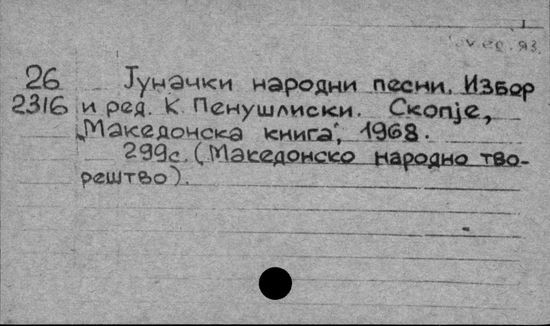 26 Јуначки народни песни. Избор
2316 и ред. К. Пенушлиски. Скопје,
„Македонска книга", 1968.
299с. (Македонско народно тво-
рештво).